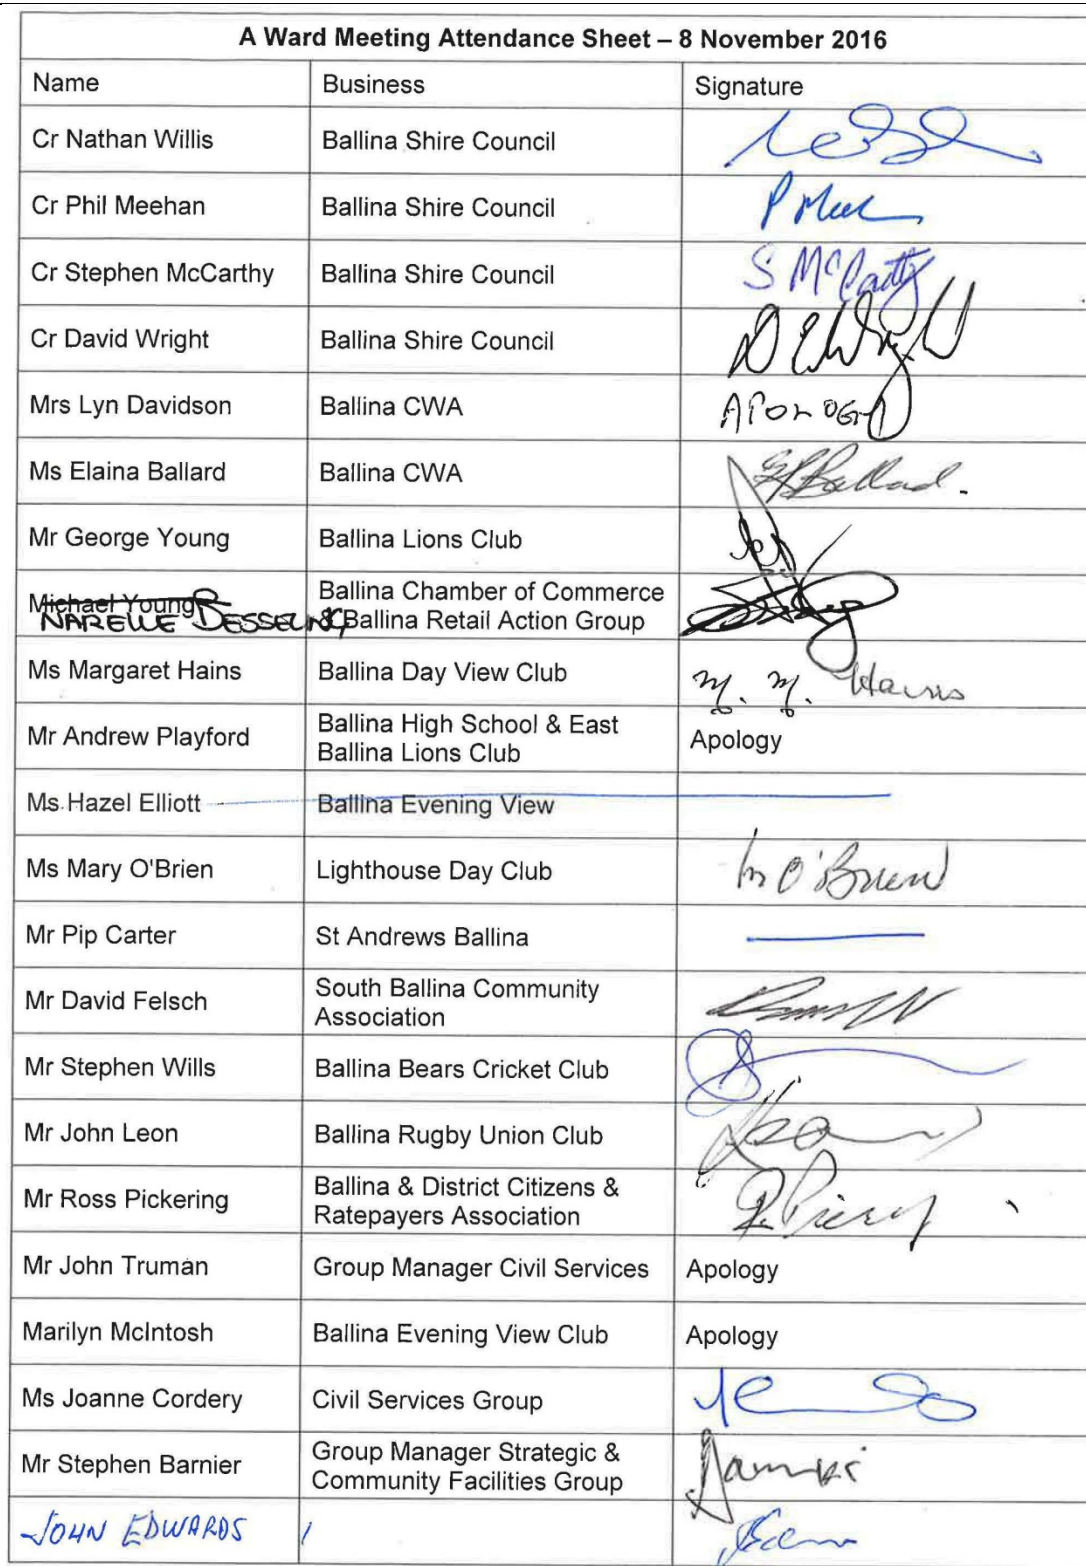 A Ward Meeting Attendance Sheet – 8 November 2016
Name Business Signature
Cr Nathan Willis Ballina Shire Council
Cr Phil Meehan Ballina Shire Council P Mee
Cr Stephen McCarthy Ballina Shire Council S McCarthy
Cr David Wright Ballina Shire Council D E Wright
Mrs Lyn Davidson Ballina CWA APOLOGY
Ms Elaina Ballard Ballina CWA Ballard.
Mr George Young Ballina Lions Club
Michael Young Ballina Chamber of Commerce
NARELLE BESSELING & Ballina Retail Action Group
Ms Margaret Hains Ballina Day View Club M. M. Hains
Mr Andrew Playford Ballina High School & East
Ballina Lions Club Apology
Ms Hazel Elliott Ballina Evening View
Ms Mary O'Brien Lighthouse Day Club M O'Brien
Mr Pip Carter St Andrews Ballina
Mr David Felsch South Ballina Community
Association
Mr Stephen Wills Ballina Bears Cricket Club
Mr John Leon Ballina Rugby Union Club
Mr Ross Pickering Ballina & District Citizens &
Ratepayers Association
Mr John Truman Group Manager Civil Services Apology
Marilyn McIntosh Ballina Evening View Club Apology
Ms Joanne Cordery Civil Services Group
Mr Stephen Barnier Group Manager Strategic &
Community Facilities Group
JOHN EDWARDS